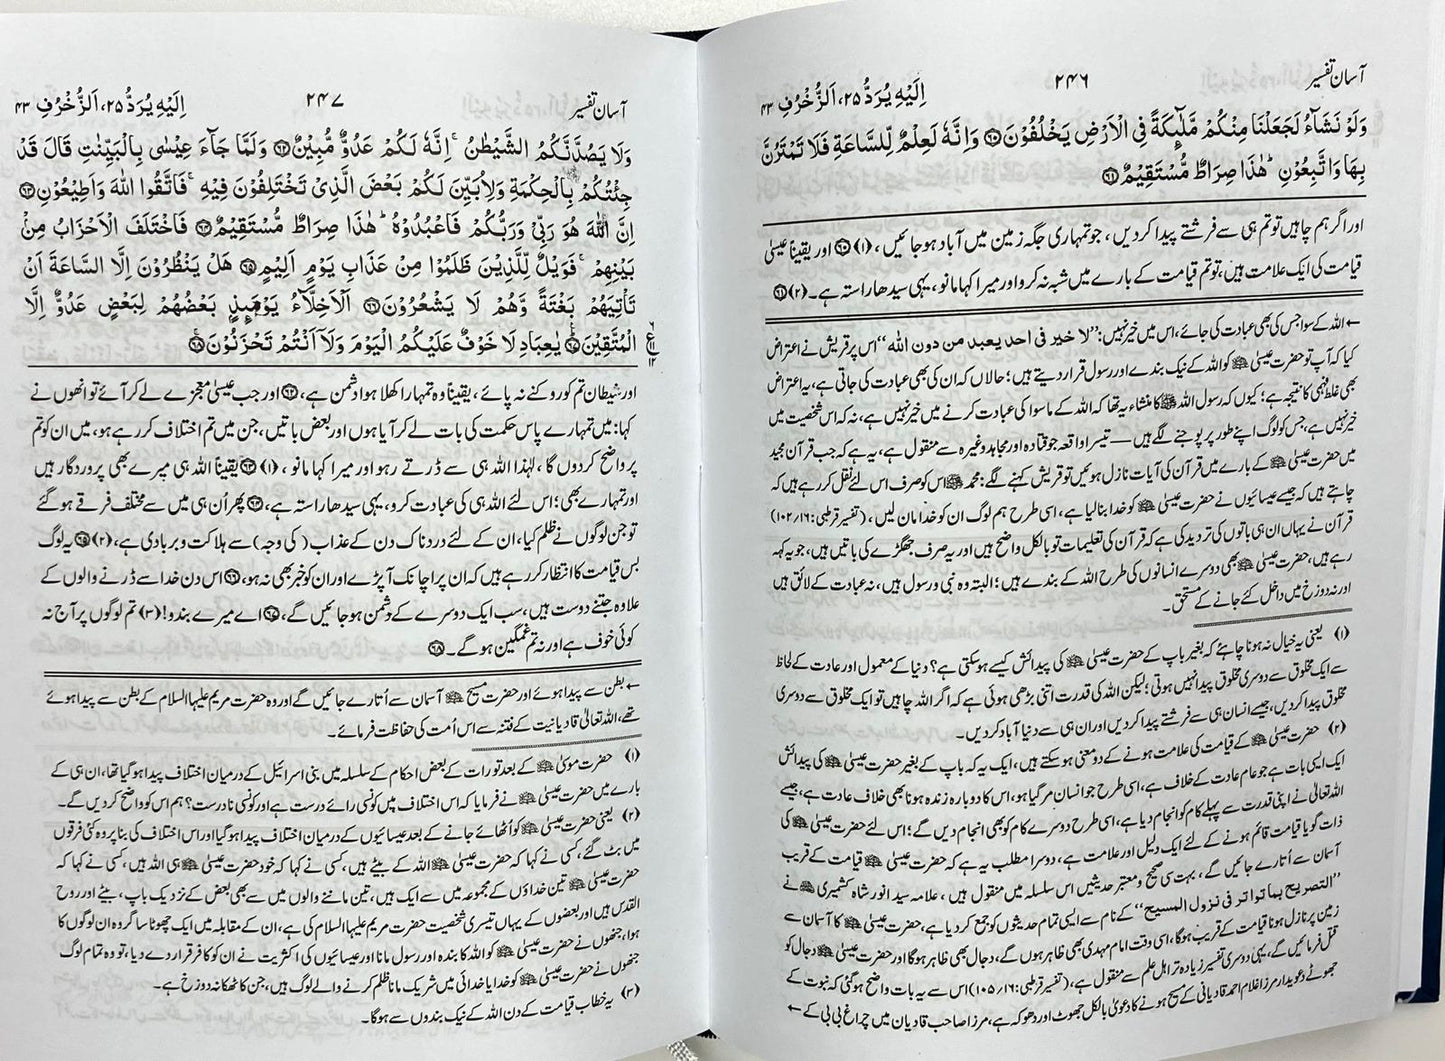 آسان تفسیر ۲۴۶ اِلَیْهِ یُرَدُّ ۲۵، اَلزُّخْرُفِ ۴۳
وَلَوْ نَشَآءُ لَجَعَلْنَا مِنْكُمْ مَّلٰٓئِكَةً فِی الْاَرْضِ یَخْلُفُوْنَ۝۶۰ وَاِنَّهٗ لَعِلْمٌ لِّلسَّاعَةِ فَلَا تَمْتَرُنَّ
بِهَا وَاتَّبِعُوْنِ ؕ هٰذَا صِرَاطٌ مُّسْتَقِیْمٌ۝۶۱
اور اگر ہم چاہیں تو تم ہی سے فرشتے پیدا کر دیں، جو تمہاری جگہ زمین میں آباد ہو جائیں، (۱) ۶۰ اور یقیناً عیسیٰ
قیامت کی ایک علامت ہیں، تو تم قیامت کے بارے میں شبہ نہ کرو اور میرا کہا مانو، یہی سیدھا راستہ ہے۔ (۲) ۶۱
← اللہ کے سوا جس کی بھی عبادت کی جائے، اس میں خیر نہیں: ’’لا خیر فی احد یعبد من دون اللہ‘‘ اس پر قریش نے اعتراض
کیا کہ آپ تو حضرت عیسیٰ علیہ السلام کو اللہ کے نیک بندے اور رسول قرار دیتے ہیں؛ حالاں کہ ان کی بھی عبادت کی جاتی ہے، یہ اعتراض
بھی غلط فہمی کا نتیجہ ہے؛ کیوں کہ رسول اللہ ﷺ کا منشاء یہ تھا کہ اللہ کے ماسوا کی عبادت کرنے میں خیر نہیں ہے، نہ کہ اس شخصیت میں
خیر نہیں ہے، جس کو لوگ اپنے طور پر پوجنے لگے ہیں — تیسرا واقعہ جو قتادہ اور مجاہد وغیرہ سے منقول ہے، یہ ہے کہ جب قرآن مجید
میں حضرت عیسیٰ علیہ السلام کے بارے میں قرآن کی آیات نازل ہوئیں تو قریش کہنے لگے: محمد ﷺ اس کو صرف اس لئے نقل کر رہے ہیں کہ
چاہتے ہیں کہ جیسے عیسائیوں نے حضرت عیسیٰ علیہ السلام کو خدا بنا لیا ہے، اسی طرح ہم لوگ ان کو خدا مان لیں، (تفسیر قرطبی: ۱۶؍۱۰۲)
قرآن نے یہاں ان ہی باتوں کی تردید کی ہے کہ قرآن کی تعلیمات تو بالکل واضح ہیں اور یہ صرف جھگڑے کی باتیں ہیں، جو یہ کہہ
رہے ہیں، حضرت عیسیٰ علیہ السلام بھی دوسرے انسانوں کی طرح اللہ کے بندے ہیں؛ البتہ وہ نبی و رسول ہیں، نہ عبادت کے لائق ہیں
اور نہ دوزخ میں داخل کئے جانے کے مستحق۔
(۱) یعنی یہ خیال نہ ہونا چاہئے کہ بغیر باپ کے حضرت عیسیٰ علیہ السلام کی پیدائش کیسے ہو سکتی ہے؟ دنیا کے معمول اور عادت کے لحاظ
سے ایک مخلوق سے دوسری مخلوق پیدا نہیں ہوتی؛ لیکن اللہ کی قدرت اتنی بڑھی ہوئی ہے کہ اگر اللہ چاہیں تو ایک مخلوق سے دوسری
مخلوق پیدا کر دیں، جیسے انسان ہی سے فرشتے پیدا کر دیں اور ان ہی سے دنیا آباد کر دیں۔
(۲) حضرت عیسیٰ علیہ السلام کے قیامت کی علامت ہونے کے دو معنی ہو سکتے ہیں، ایک یہ کہ باپ کے بغیر حضرت عیسیٰ علیہ السلام کی پیدائش
ایک ایسی بات ہے جو عام عادت کے خلاف ہے، اسی طرح جو انسان مر گیا ہو، اس کا دوبارہ زندہ ہونا بھی خلاف عادت ہے، جیسے
اللہ تعالیٰ نے اپنی قدرت سے پہلے کام کو انجام دیا ہے، اسی طرح دوسرے کام کو بھی انجام دیں گے؛ اس لئے حضرت عیسیٰ علیہ السلام کی
ذات گویا قیامت قائم ہونے کے لئے ایک دلیل اور علامت ہے، دوسرا مطلب یہ ہے کہ حضرت عیسیٰ علیہ السلام قیامت کے قریب
آسمان سے اُتارے جائیں گے، بہت سی صحیح و معتبر حدیثیں اس سلسلہ میں منقول ہیں، علامہ سید انور شاہ کشمیریؒ نے
’’التصریح بما تواتر فی نزول المسیح‘‘ کے نام سے ایسی تمام حدیثوں کو جمع کر دیا ہے، حضرت عیسیٰ علیہ السلام کا آسمان سے
زمین پر نازل ہونا قیامت کے قریب ہوگا، اسی وقت امام مہدی بھی ظاہر ہوں گے، دجال بھی ظاہر ہوگا اور حضرت عیسیٰ علیہ السلام دجال کو
قتل فرمائیں گے، یہی دوسری تفسیر زیادہ تر اہل علم سے منقول ہے، (تفسیر قرطبی: ۱۶؍۱۰۵) اس سے یہ بات واضح ہو گئی کہ نبوت کے
جھوٹے دعویدار مرزا غلام احمد قادیانی کے مسیح ہونے کا دعویٰ بالکل جھوٹ اور دھوکہ ہے، مرزا صاحب قادیان میں چراغ بی بی کے ←
آسان تفسیر ۲۴۷ اِلَیْهِ یُرَدُّ ۲۵، اَلزُّخْرُفِ ۴۳
وَلَا یَصُدَّنَّكُمُ الشَّیْطٰنُ ۚ اِنَّهٗ لَكُمْ عَدُوٌّ مُّبِیْنٌ۝۶۲ وَلَمَّا جَآءَ عِیْسٰی بِالْبَیِّنٰتِ قَالَ قَدْ
جِئْتُكُمْ بِالْحِكْمَةِ وَلِاُبَیِّنَ لَكُمْ بَعْضَ الَّذِیْ تَخْتَلِفُوْنَ فِیْهِ ۚ فَاتَّقُوا اللّٰهَ وَاَطِیْعُوْنِ۝۶۳
اِنَّ اللّٰهَ هُوَ رَبِّیْ وَرَبُّكُمْ فَاعْبُدُوْهُ ؕ هٰذَا صِرَاطٌ مُّسْتَقِیْمٌ۝۶۴ فَاخْتَلَفَ الْاَحْزَابُ مِنْۢ
بَیْنِهِمْ ۚ فَوَیْلٌ لِّلَّذِیْنَ ظَلَمُوْا مِنْ عَذَابِ یَوْمٍ اَلِیْمٍ۝۶۵ هَلْ یَنْظُرُوْنَ اِلَّا السَّاعَةَ اَنْ
تَاْتِیَهُمْ بَغْتَةً وَّهُمْ لَا یَشْعُرُوْنَ۝۶۶ اَلْاَخِلَّآءُ یَوْمَئِذٍۭ بَعْضُهُمْ لِبَعْضٍ عَدُوٌّ اِلَّا
الْمُتَّقِیْنَ۝۶۷ یٰعِبَادِ لَا خَوْفٌ عَلَیْكُمُ الْیَوْمَ وَلَاۤ اَنْتُمْ تَحْزَنُوْنَ۝۶۸
اور شیطان تم کو روکنے نہ پائے، یقیناً وہ تمہارا کھلا ہوا دشمن ہے، ۶۲ اور جب عیسیٰ معجزے لے کر آئے تو انھوں نے
کہا: میں تمہارے پاس حکمت کی بات لے کر آیا ہوں اور بعض باتیں، جن میں تم اختلاف کر رہے ہو، میں ان کو تم
پر واضح کر دوں گا، لہٰذا اللہ ہی سے ڈرتے رہو اور میرا کہا مانو، (۱) ۶۳ یقیناً اللہ ہی میرے بھی پروردگار ہیں
اور تمہارے بھی؛ اس لئے اللہ ہی کی عبادت کرو، یہی سیدھا راستہ ہے، ۶۴ پھر اُن ہی میں سے مختلف فرقے ہو گئے
تو جن لوگوں نے ظلم کیا، ان کے لئے دردناک دن کے عذاب (کی وجہ) سے ہلاکت و بربادی ہے، (۲) ۶۵ یہ لوگ
بس قیامت کا انتظار کر رہے ہیں کہ ان پر اچانک آپڑے اور ان کو خبر بھی نہ ہو، ۶۶ اس دن خدا سے ڈرنے والوں کے
علاوہ جتنے دوست ہیں، سب ایک دوسرے کے دشمن ہو جائیں گے، ۶۷ اے میرے بندو! (۳) تم لوگوں پر آج نہ
کوئی خوف ہے اور نہ تم غمگین ہو گے۔ ۶۸
← بطن سے پیدا ہوئے اور حضرت مسیح علیہ السلام آسمان سے اُتارے جائیں گے اور وہ حضرت مریم علیہا السلام کے بطن سے پیدا ہوئے
تھے، اللہ تعالیٰ قادیانیت کے فتنہ سے اس اُمت کی حفاظت فرمائے۔
(۱) حضرت موسیٰ علیہ السلام کے بعد تورات کے بعض احکام کے سلسلہ میں بنی اسرائیل کے درمیان اختلاف پیدا ہو گیا تھا، ان ہی کے
بارے میں حضرت عیسیٰ علیہ السلام نے فرمایا کہ اس اختلاف میں کونسی رائے درست ہے اور کونسی نادرست؟ ہم اس کو واضح کر دیں گے۔
(۲) یعنی حضرت عیسیٰ علیہ السلام کو اُٹھائے جانے کے بعد عیسائیوں کے درمیان اختلاف پیدا ہو گیا اور اس اختلاف کی بنا پر وہ کئی فرقوں
میں بٹ گئے، کسی نے کہا کہ حضرت عیسیٰ علیہ السلام اللہ کے بیٹے ہیں، کسی نے کہا کہ خود حضرت عیسیٰ علیہ السلام ہی اللہ ہیں، کسی نے کہا کہ
حضرت عیسیٰ علیہ السلام تین خداؤں کے مجموعہ میں سے ایک ہیں، تین ماننے والوں میں سے بھی بعض کے نزدیک باپ، بیٹے اور روح
القدس ہیں اور بعضوں کے یہاں تیسری شخصیت حضرت مریم علیہا السلام کی ہے، ان کے مقابلہ میں ایک چھوٹا سا گروہ ان لوگوں کا
ہوا، جنھوں نے حضرت عیسیٰ علیہ السلام کو اللہ کا بندہ اور رسول مانا اور عیسائیوں کی اکثریت نے ان کو کافر قرار دے دیا، تو وہ تمام لوگ
جنھوں نے حضرت عیسیٰ علیہ السلام کو خدا یا خدائی میں شریک مانا ظلم کرنے والے لوگ ہیں، جن کا ٹھکانہ دوزخ ہے۔
(۳) یہ خطاب قیامت کے دن اللہ کے نیک بندوں سے ہوگا۔